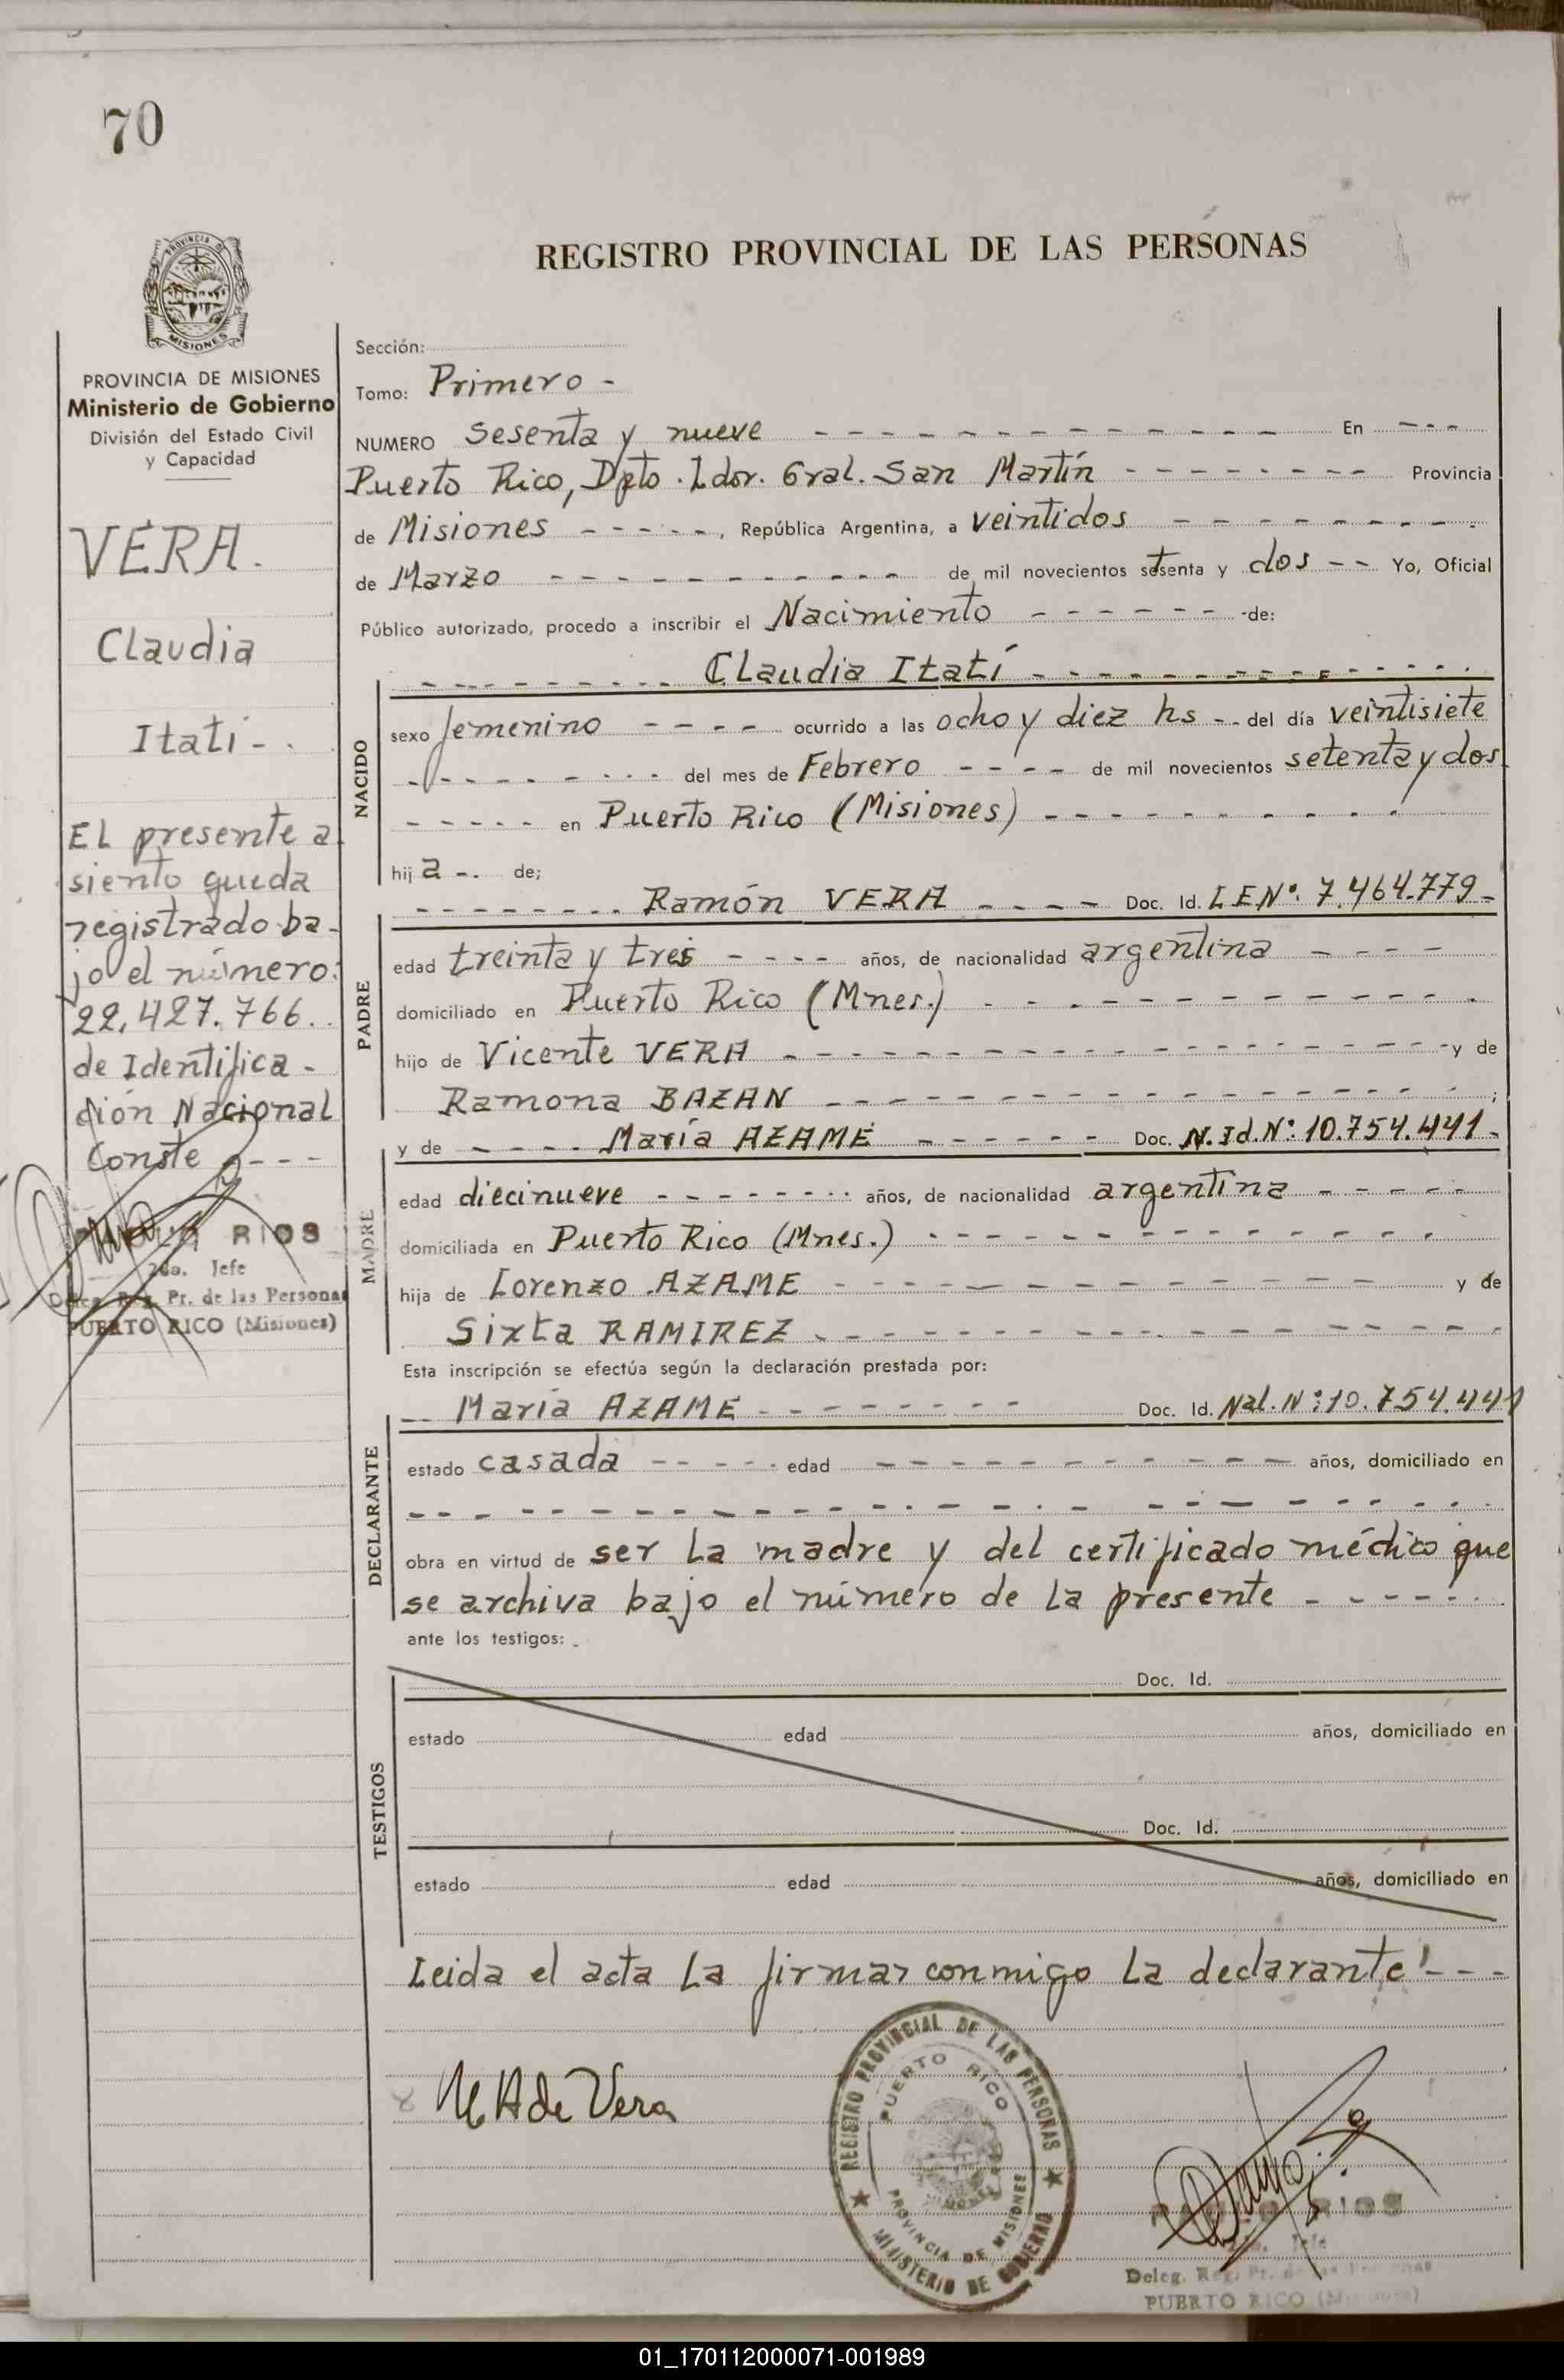 70
REGISTRO PROVINCIAL DE LAS PERSONAS
MISIONES
PROVINCIA DE MISIONES
Ministerio de Gobierno
División del Estado Civil
y Capacidad
VERA.
Claudia
Itatí - .
EL presente a
siento queda
registrado ba-
jo el número:
22.427.766.
de Identifica-
ción Nacional
Conste - - -
RIOS
2do. Jefe
Deleg. Reg. Pr. de las Personas
PUERTO RICO (Misiones)
Sección:
Tomo: Primero -
NUMERO Sesenta y nueve - - - En - - -
Puerto Rico, Dpto. Ldor. Gral. San Martín - - - Provincia
de Misiones - - - , República Argentina, a veintidos - - -
de Marzo - - - de mil novecientos setenta y dos - - Yo, Oficial
Público autorizado, procedo a inscribir el Nacimiento - - - de:
NACIDO
- - - Claudia Itatí - - -
sexo femenino - - - ocurrido a las ocho y diez hs - - del día veintisiete
- - - del mes de Febrero - - - de mil novecientos setenta y dos
- - - en Puerto Rico (Misiones) - - -
hija - . de;
PADRE
- - - Ramón VERA - - - Doc. Id. LEN°: 7.464.779 -
edad treinta y tres - - - años, de nacionalidad argentina - - -
domiciliado en Puerto Rico (Mnes.) - - -
hijo de Vicente VERA - - - y de
Ramona BAZAN - - - ;
y de - - - María AZAME - - - Doc. N. Id. N°: 10.754.441 -
MADRE
edad diecinueve - - - años, de nacionalidad argentina - - -
domiciliada en Puerto Rico (Mnes.) - - -
hija de Lorenzo AZAME - - - y de
Sixta RAMIREZ - - -
Esta inscripción se efectúa según la declaración prestada por:
DECLARANTE
- - María AZAME - - - Doc. Id. Nal. N°: 10.754.441
estado casada - - - edad - - - años, domiciliado en
- - -
obra en virtud de ser La madre y del certificado médico que
se archiva bajo el número de La presente - - -
ante los testigos:
TESTIGOS
Doc. Id.
estado edad años, domiciliado en
Doc. Id.
estado edad años, domiciliado en
Leida el acta La firmar conmigo La declarante! - - -
M A de Vera
REGISTRO PROVINCIAL DE LAS PERSONAS
PUERTO RICO
PROVINCIA DE MISIONES
MINISTERIO DE GOBIERNO
RIOS
Jefe
Deleg. Reg. Pr. de las Personas
PUERTO RICO (Misiones)
01_170112000071-001989